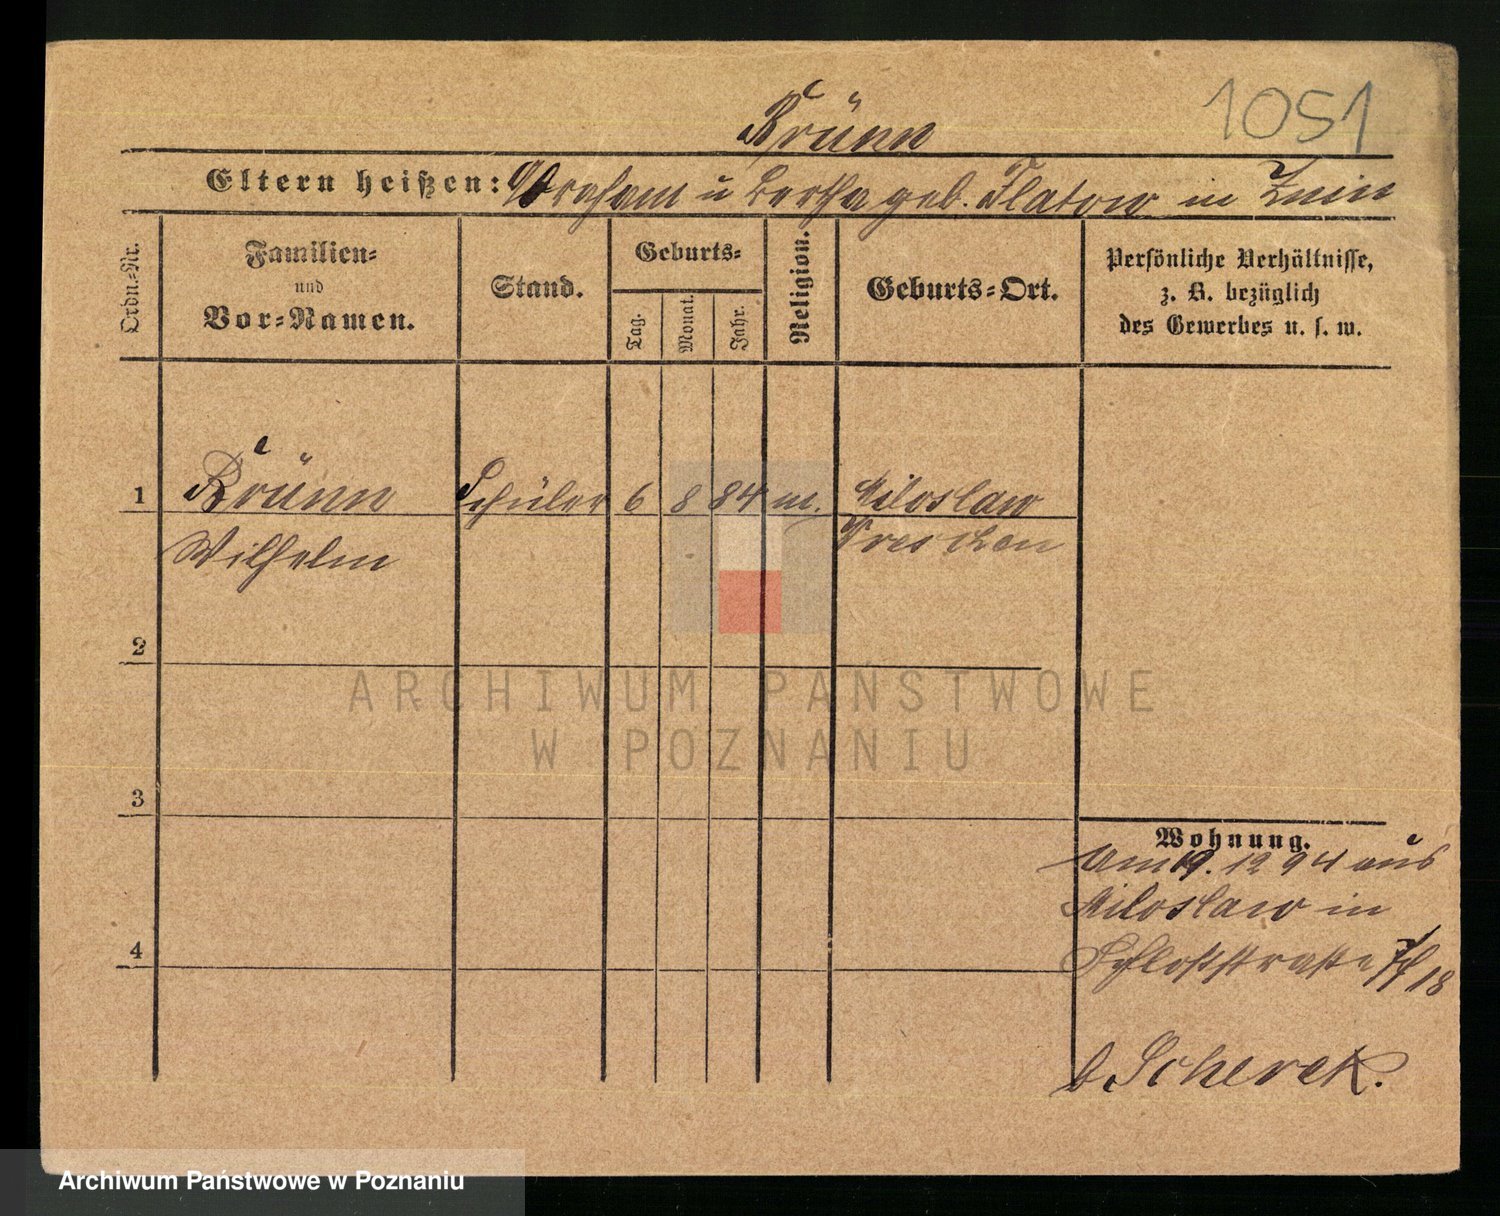 1051
Brünn
Eltern heißen: Abraham u Bertha geb. Flatow in Znin
Ordn.-Nr.
Familien-
und
Vor-Namen.
Stand.
Geburts-
Tag.
Monat.
Jahr.
Religion.
Geburts-Ort.
Persönliche Verhältnisse,
z. B. bezüglich
des Gewerbes u. s. w.
1 Brünn Schüler 6 8 84 m. Miloslaw
Wilhelm Wreschen
2
3
4
Wohnung.
Am 19. 12 94 aus
Miloslaw in
Schloßstraße 18
b Scherek.
ARCHIWUM PAŃSTWOWE
W POZNANIU
Archiwum Państwowe w Poznaniu